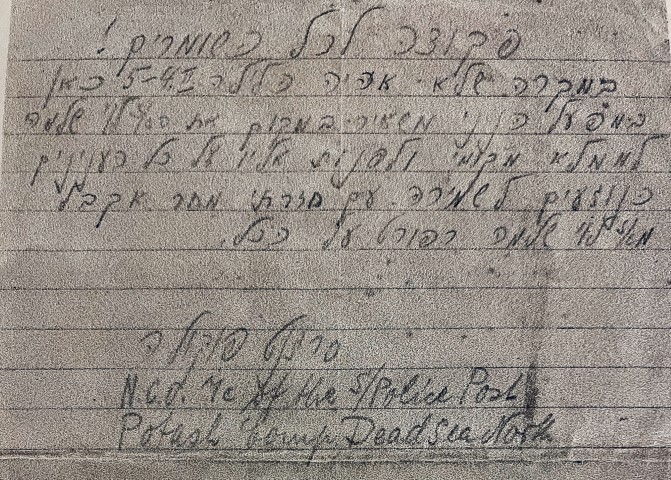 פקודה לכל השומרים!
במקרה שלא אהיה הלילה 5-4.II כאן
במפעל הנני משאיר במקום את שלמה
לממלא מקומי ולפנות אליו על כל הענינים
הנוגעים לשמירה. עם חזרתי מחר אקבל
שלמה רפורט על הכל.
N.C.O. I/c of the S/Police Post
Potash Comp. Dead Sea North